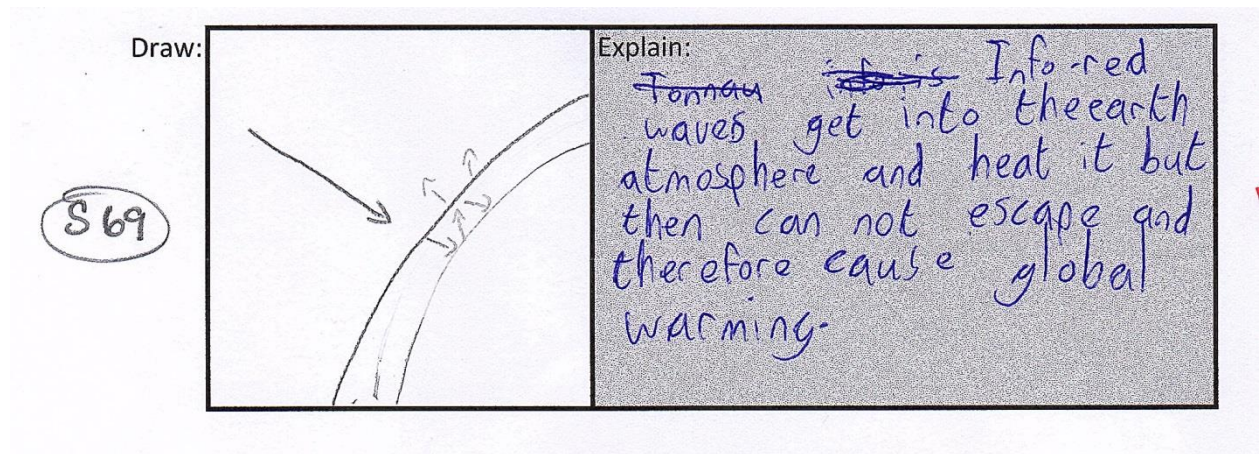 Draw:
S 69
Explain:
Info-red
waves get into the earth
atmosphere and heat it but
then can not escape and
therefore cause global
warming.